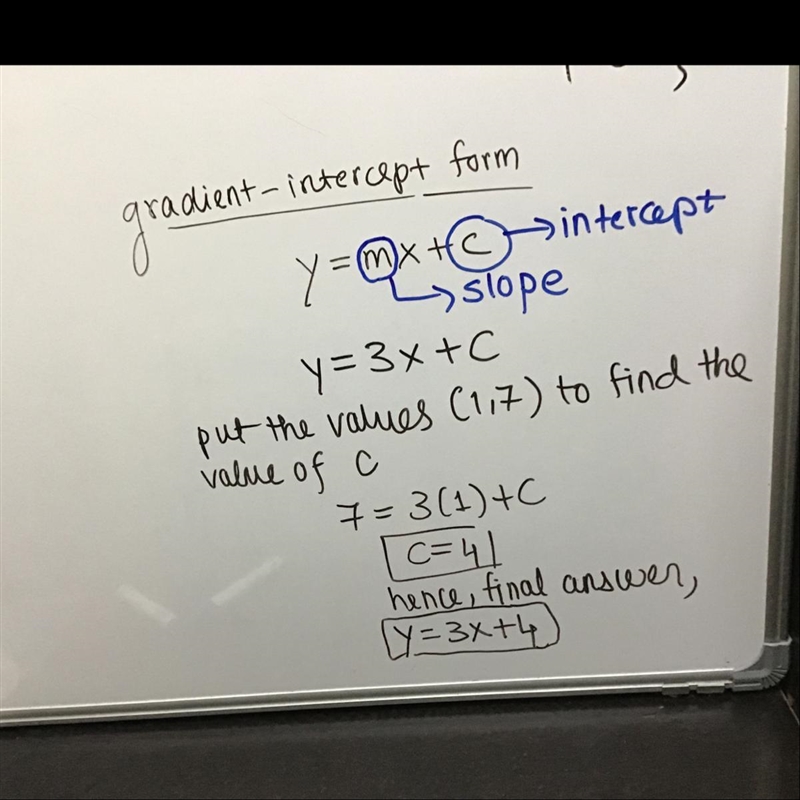 gradient-intercept form
y = mx + c → intercept
slope
y = 3x + C
put the values (1,7) to find the
value of C
7 = 3(1) + C
C = 4
hence, final answer,
y = 3x + 4